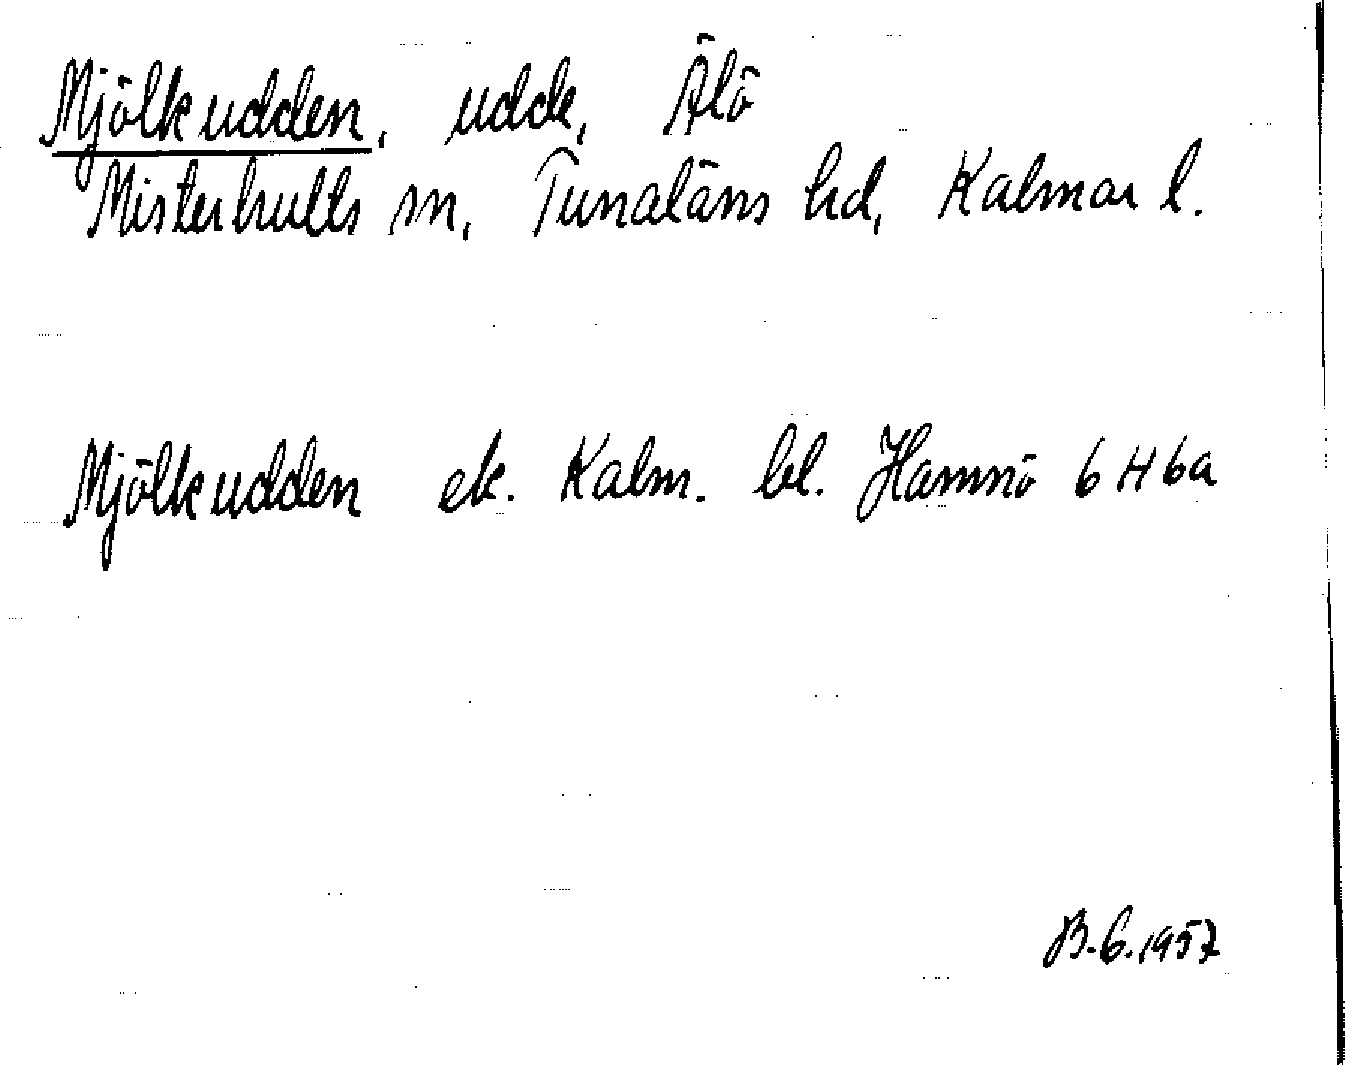 Mjölkudden, udde, Älö
Misterhults sn, Tunaläns hd, Kalmar l.
Mjölkudden ek. Kalm. bl. Hamnö 6 H 6a
B.G.1957